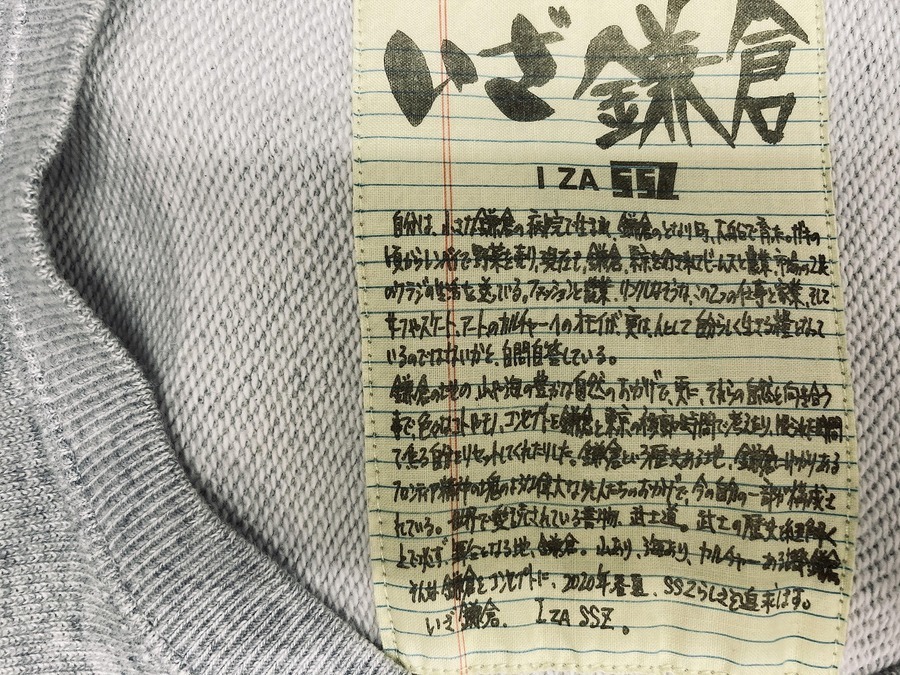 いざ鎌倉
IZA SSZ
自分は、小さな鎌倉の病院で生まれ、鎌倉のとなり町、大船で育った。
頃から 野菜を売り、現在も、鎌倉、
の生活を送っている。ファッションと農業、リンクしなそうな、この2つの仕事と家業、そして
サーフやスケート、アートのカルチャーへのオモイが、実は、人として自分らしく生きる糧となって
いるのではないかと、自問自答している。
鎌倉の地の山や海の豊かな自然のおかげで、更に、それらの自然と向き合う
事で、色のヒントにもし、コンセプトを鎌倉と東京の移動の時間で考えたり、限られた時間
で焦る自分をリセットしてくれたりした。鎌倉という歴史ある地、鎌倉にゆかりある
フロンティア精神の塊のような偉大な先人たちのおかげで、今の自分の一部が構成さ
れている。世界で愛読されている書物、武士道。武士の歴史を紐解く
上で必ず、舞台となる地、鎌倉。山あり、海あり、カルチャーある 鎌倉
そんな鎌倉をコンセプトに、2020年春夏、SSZらしさを追求します。
いざ鎌倉。 IZA SSZ。